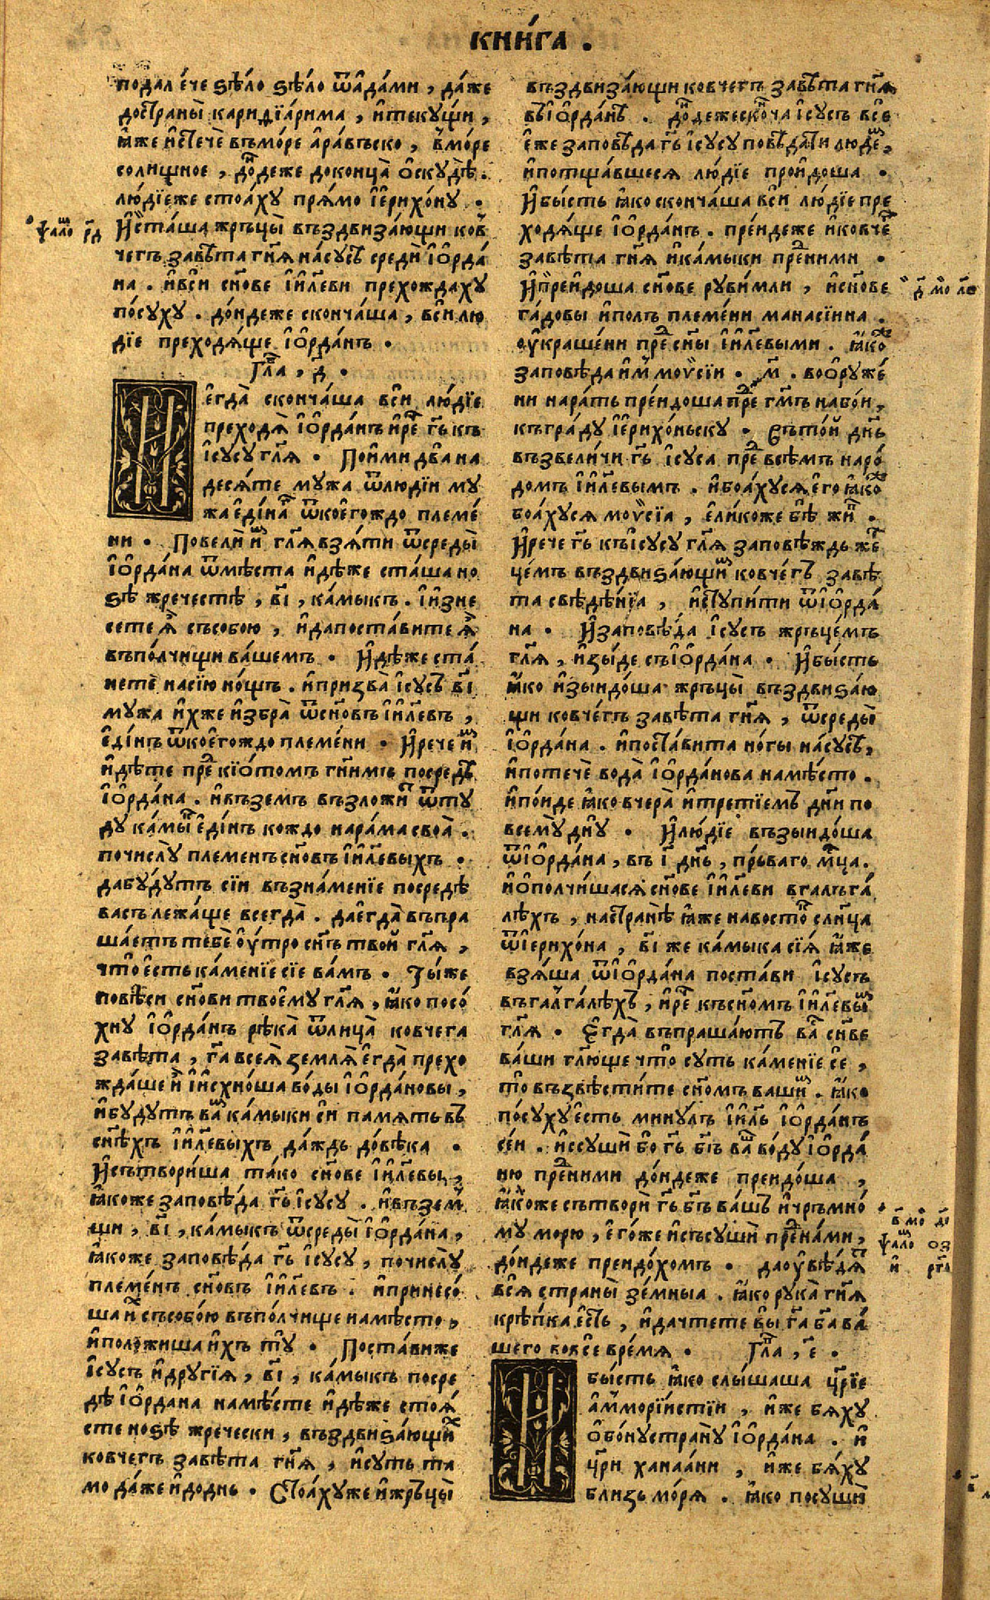 КНИ́ГА .
пода́л є́че ѕѣ́ло ѕѣ́ло ѿада́ми , да́же
достраны̀ кариꙗ҆ри́ма , и҆теку́щи ,
ꙗ҆́же и҆стечѐ въмо́ре а҆ра́вьско , в̾мо́ре
солищное , до́ндеже доконца̀ ѻ҆скудѣ̀ .
лю́дїеже стоѧ́ху прѧ́мо і҆єрихо́ну .
И҆ста́ша жръцы̀ въздвиза́ющи ков̾
чегъ завѣ́та гн҃ѧ на́сусѣ средѝ і҆ѻ҆рда́
на . и҆вси сн҃ове і҆и҃леви прехожда́ху
по́суху . до́ндеже сконча́ша , вси́ лю́
дїе преходѧ́ще і҆ѻ҆рда́нъ .
Гла , д҃ .
И҆ є҆гда̀ сконча́ша вси́ лю́дїе
преходѧ̀ і҆ѻ҆рда́нъ и҆рѐ гь҃ къ
і҆су́су гл҃ѧ . Пои́ми два́ на
десѧ́те му́жа ѿлюдїи му́
жа є҆ди́на ѿкоегождо племе́
ни . Повели́ и҆м гл҃ѧ взѧ́ти ѿсреды̀
і҆ѻ҆рда́на ѿмѣ́ста и҆дѣ́же ста́ша но
ѕѣ̀ жречестѣ , в҃і , ка́мыкъ . і҆и҆зне
сете ѧ҆̀ съсобою , и҆дапоста́вите ѧ҆̀
въпо́лчищи ва́шемъ . И҆дѣ́же ста́
нетѐ насїю но́щъ . и҆призва̀ і҆су́съ в҃і
му́жа и҆хже и҆збра̀ ѿсн҃овъ і҆и҃левъ ,
є҆ди́нъ ѿкоегождо племе́ни . И҆рече и҆м
и҆дѣ́те пре кїо́томъ гн҃имъ посредѣ̀
і҆ѻ҆рда́на . и҆въземъ възложи ѿту́
ду ка́мы є҆ди́нъ кождо нара́ма своѧ̀ .
почислу̀ племенъ сн҃овъ і҆и҃левыхъ .
дабу́дутъ сїи възна́менїе посредѣ̀
васъ лежа́ще всегда̀ . дае҆гда̀ въпра
ша́етъ тебѐ ѹ҆́тро сн҃ъ твой гл҃ѧ ,
что є҆сть ка́менїе сїе ва́мъ . Ты́же
повѣ́си сн҃ови твоему̀ гл҃ѧ , ꙗ҆́ко посо́
хну і҆ѻ҆рда́нъ рѣка̀ ѿлица̀ ковчега
завѣ́та , гд҃а всеѧ̀ землѧ̀ є҆гда̀ прехо
жда́ше и҆ і҆и҆схно́ша во́ды і҆ѻ҆рда́новы ,
и҆бу́дутъ вам ка́мыки си́и па́мѧть въ
сн҃ѣхъ і҆и҃левыхъ да́ждь до́вѣка .
И҆сътвори́ша та́ко сн҃ове і҆и҃левы ,
ꙗ҆́коже заповѣ́да гь҃ і҆су́су . и҆въземˮ
ши , в҃і , ка́мыкъ ѿсреды̀ і҆ѻ҆рда́на ,
ꙗ҆́коже заповѣ́да гь҃ і҆су́су , почислу̀
племе́нъ сн҃овъ і҆и҃левъ . и҆принесо́
ша и҆х съсобо́ю въпо́лчище намѣ́сто ,
и҆положи́ша и҆́хъ ту̀ . Поста́виже
і҆су́съ и҆другі́ѧ , в҃і , ка́мыкъ посре
дѣ̀ і҆ѻ҆рда́на намѣ́сте и҆дѣ́же стоѧ́
сте ноѕѣ̀ жречески , въздвиѕа́ющих
ковчегъ завѣ́та гн҃ѧ , и҆су́ть та́
мо да́же и҆додн҃ь . Стоѧ́хуже и҆жръцы̀
въздвиза́ющи ковчегъ завѣ́та гн҃ѧ
въі҆ѻ҆рда́нѣ . до́ндеже сконча і҆су́съ все
є҆же заповѣ́да гь҃ і҆су́су повѣ́дати люде ,
и҆потща́вшесѧ лю́дїе проидо́ша .
И҆бы́сть ꙗ҆́ко сконча́ша вси́ лю́дїе пре
ходѧ́ще і҆ѻ҆рда́нъ . преидеже и҆ковче
завѣ́та гн҃ѧ и҆ка́мыки преними .
И҆преидо́ша сн҃ове руви́мли , и҆сн҃ове
га́довы и҆полъ племе́ни манасїина .
ѹ҆кра́шени пре сн҃ы і҆и҃левыми . ꙗ҆́ко
заповѣ́да и҆м моѵ̈сїи . м҃ . воѻ҆руже́
ни нара́ть преидо́ша пре гм҃ъ набо́и ,
къгра́ду і҆єрихо́ньску . Въто́й дн҃ь
възвели́чи гь҃ і҆су́са пре всѣ́мъ наро́
домъ і҆и҃левымъ . и҆боѧ́хусѧ є҆го̀ ꙗ҆́ко
боѧ́хусѧ моѵ̈сїа , є҆ли́коже бѣ̀ жив .
И҆рече гь҃ къі҆су́су гл҃ѧ заповѣ́ждь же
це́мъ въздвиѕа́ющим ковче́гъ завѣ́
та свѣдѣ́нїа , и҆ступи́ти ѿі҆ѻ҆рда́
на . И҆заповѣ́да і҆су́съ жръце́мъ
гл҃ѧ , и҆зы́де съі҆ѻ҆рда́на . И҆бы́сть
ꙗ҆́ко и҆зыидо́ша жръцы̀ въздвиѕа́ю
щи ковче́гъ завѣ́та гн҃ѧ , ѿсреды̀
і҆ѻ҆рда́на . и҆поста́вита но́гы на́сусѣ ,
и҆потечѐ вода̀ і҆ѻ҆рда́нова намѣ́сто .
и҆по́иде ꙗ҆́ко вчера̀ и҆третїемъ дн҃и по
всемꙋ̀ дн҃у . И҆лю́дїе възыидо́ша
ѿі҆ѻ҆рда́на , въ і҃ дн҃ь , пръваго мц҃а .
и҆ѻ҆полчи́шасѧ сн҃ове і҆и҃леви вгалъга́
лѣхъ , настранѣ̀ ꙗ҆́же навосто сл҃нца
ѿі҆єрихо́на , в҃і же ка́мыка сїѧ̀ ꙗ҆́же
взѧ́ша ѿі҆ѻ҆рда́на поста́ви і҆су́съ
въгалга́лѣхъ , и҆рѐ късн҃омъ і҆и҃левым
гл҃ѧ . Є҆гда̀ въпраша́ютъ ва сн҃ове
ва́ши гл҃юще что̀ суть ка́менїе се ,
то̀ възвѣсти́те сн҃омъ ваши́м . ꙗ҆́ко
по́суху є҆сть мину́лъ і҆и҃ль і҆ѻ҆рда́нъ
се́и . и҆ссуши́ бо гь҃ бг҃ъ ва во́ду і҆ѻ҆рда́
ню преними до́ндеже преидо́ша ,
ꙗ҆́коже сътворѝ гь҃ бг҃ъ ва́шъ и҆чръмно́
му морю , є҆го́же и҆съсушѝ прена́ми ,
до́ндеже преидо́хомъ . даѹ҆вѣ́дѧ
всѧ страны̀ зе́мныа . ꙗ҆́ко рука̀ гн҃ѧ
крѣ́пка є҆сть , и҆дачтете вы̀ гд҃а бг҃а ва́
шего вовсе вре́мѧ . Гла , є҃ .
И҆ бы́сть ꙗ҆́ко слы́шаша цр҃їе
а҆мморїи́стїи , и҆́же бѧ́ху
ѻ҆бо́нустра́ну і҆ѻ҆рда́на . и҆
цр҃и ханаа́ни , и҆́же бѧ́ху
бли́зь мо́рѧ . ꙗ҆́ко посушѝ